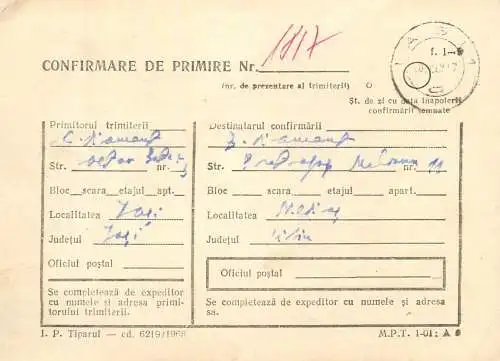 IAȘI 1
f. 1-5
CONFIRMARE DE PRIMIRE Nr. 1117
(nr. de prezentare al trimiterii)
Șt. de zi cu data înapoierii
confirmării semnate
Primitorul trimiterii
Str. nr.
Bloc scara etajul apt.
Localitatea Iași
Județul Iași
Oficiul poștal
Se completează de expeditor
cu numele și adresa primi-
torului trimiterii.
Destinatarul confirmării
Str. nr. 11
Bloc scara etajul apart.
Localitatea
Județul Sibiu
Oficiul poștal
Se completează de expeditor cu numele și adresa
sa.
I. P. Tiparul — cd. 6219/1968
M.P.T. 1-01: A 6